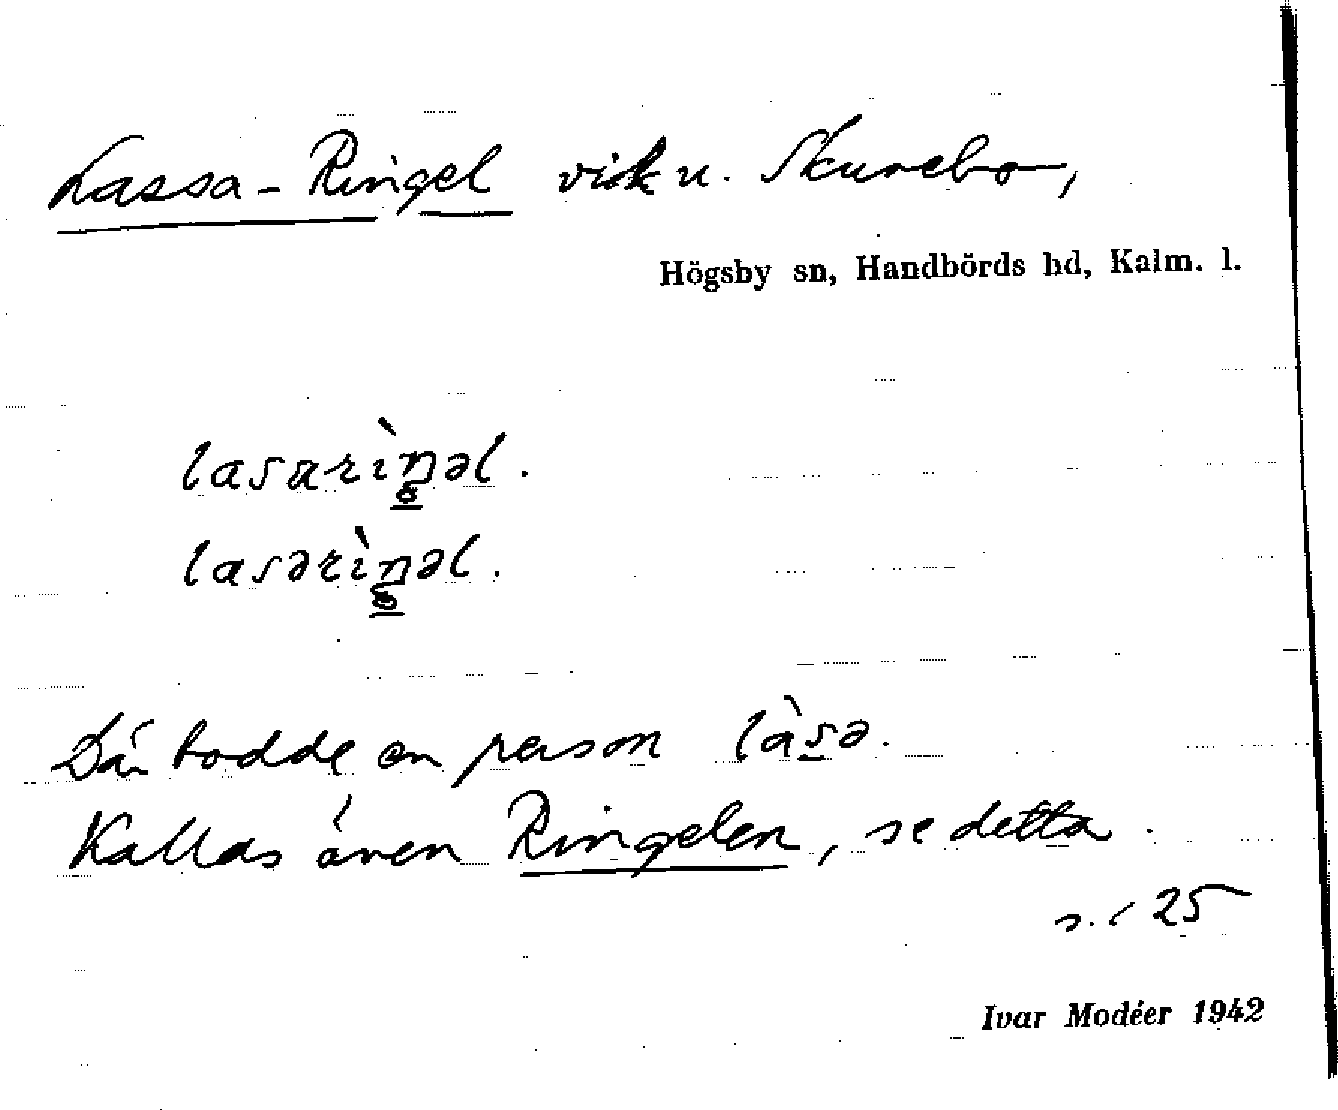 Lassa-Ringel vik u. Skurebo,
Högsby sn, Handbörds hd, Kalm. l.
lasarìŋəl.
lasərìŋəl.
Där bodde en person làsə.
Kallas även Ringelen, se detta.
s. 25
Ivar Modéer 1942